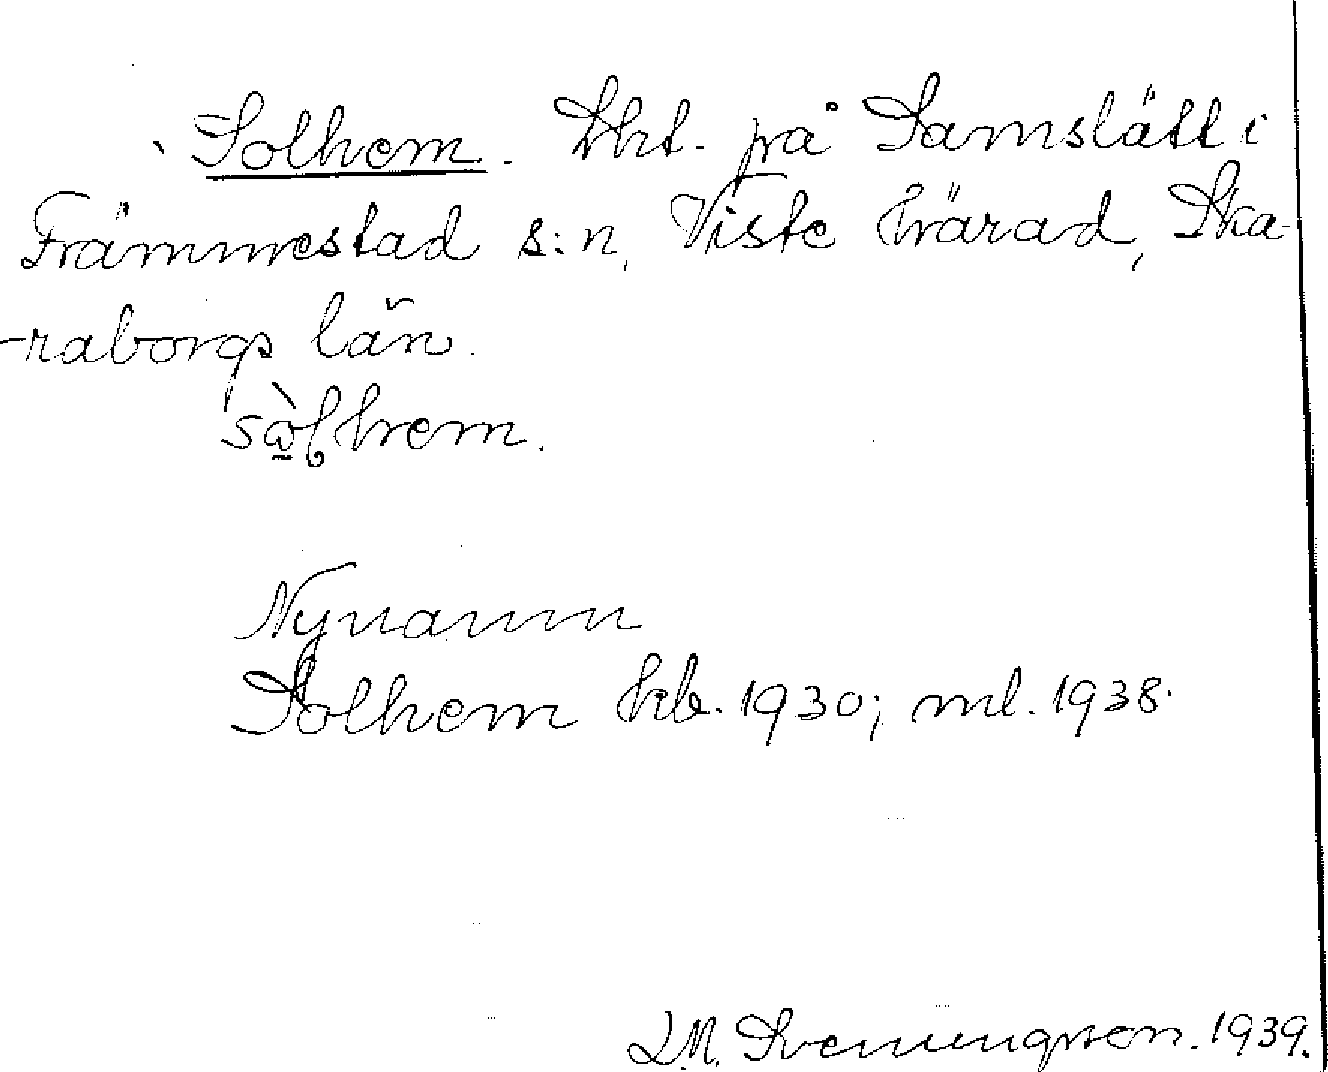 Solhem. Lht. på Samslätt i
Främmestad s:n, Viste härad, Ska-
-raborgs län.
sὼlhem.
Nynamn
Solhem kb. 1930; ml. 1938.
D.M. Sveningsson. 1939.